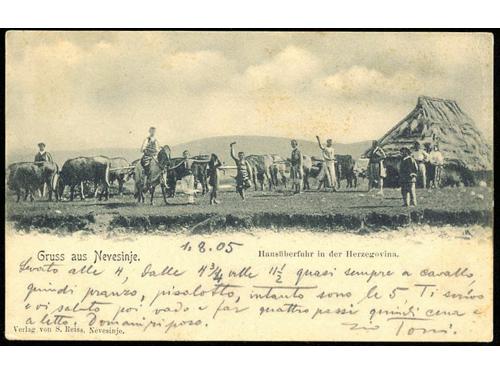 Gruss aus Nevesinje.
1.8.05
Hausüberfuhr in der Herzegovina.
Levato alle 4, dalle 4¾ alle 11½ quasi sempre a cavallo
quindi pranzo, pisolotto, intanto sono le 5. Ti scrivo
e vi saluto poi vado a far quattro passi quindi cena e
a letto. Domani riposo.
zio Toni.
Verlag von S. Reiss, Nevesinje.